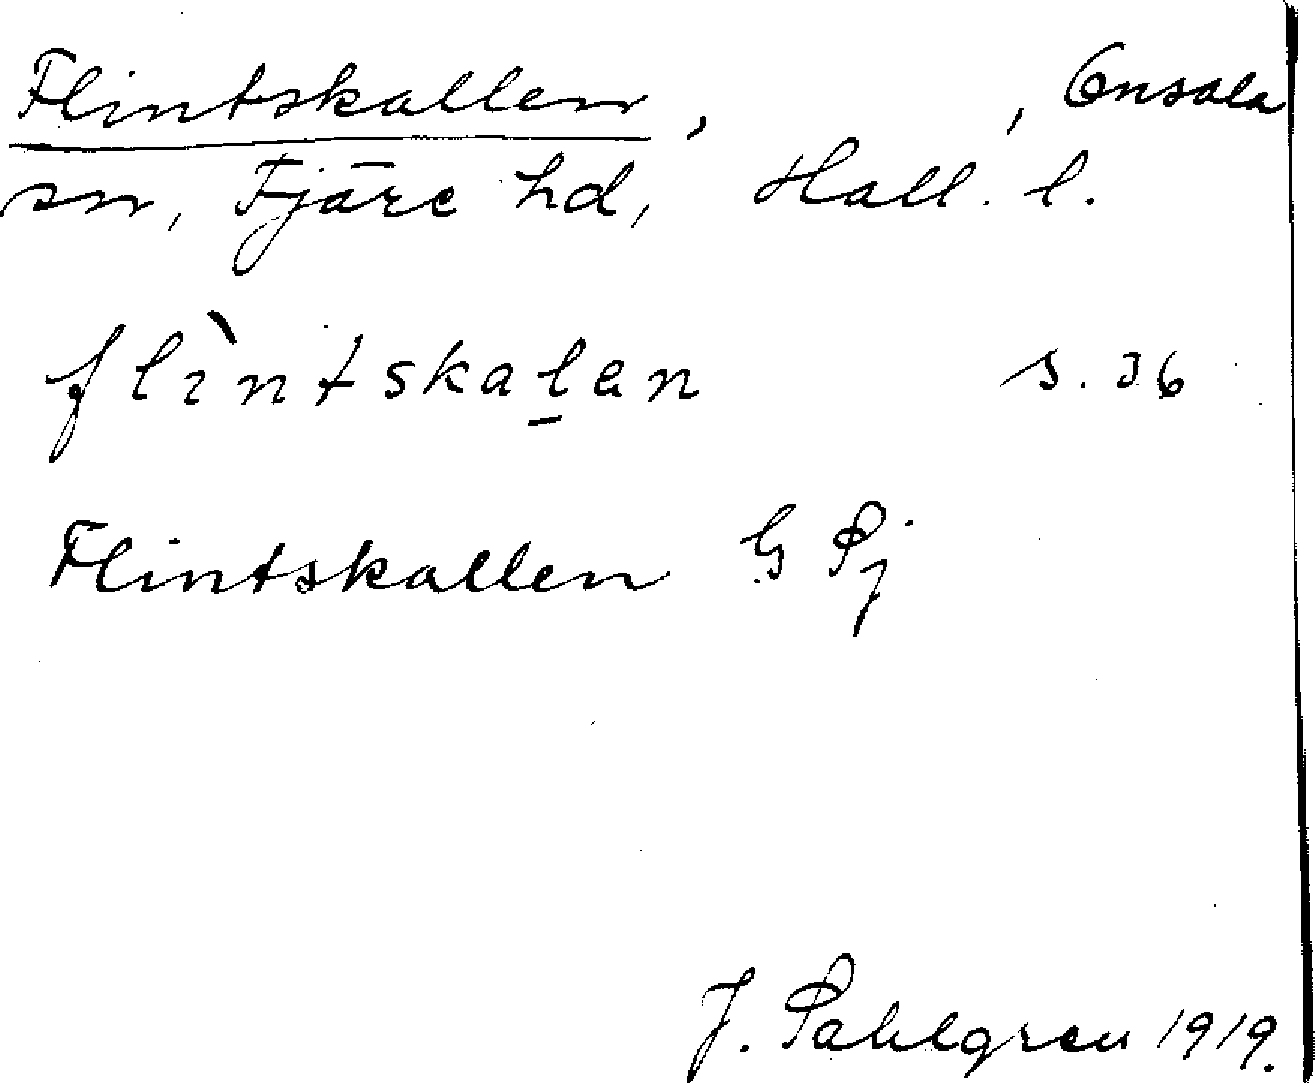 Flintskallen, , Onsala
sn, Fjäre hd, Hall. l.
flìntskaḻen s. 36
Flintskallen G Pj
J. Sahlgren 1919.